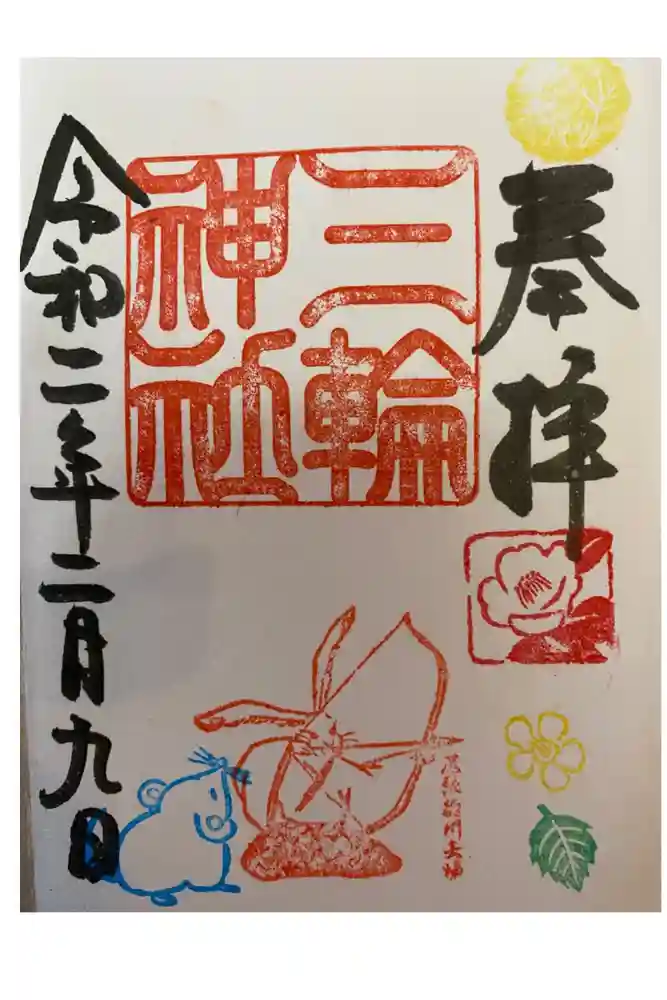 奉拝
三輪
神社
令和二年二月九日